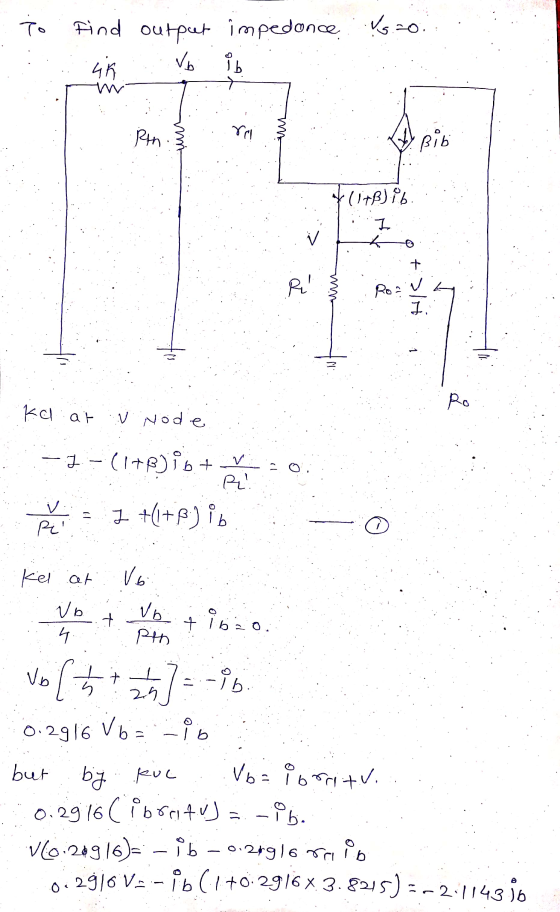 To Find output impedance Vs=0.
4K Vb ib
Rth rπ βib
(1+β)ib
I
V
+
RL' Ro = V/I
-
Ro
Kcl at V Node
-I-(1+β)ib + V/RL' = 0.
V/RL' = I+(1+β)ib — ①
Kcl at Vb
Vb/4 + Vb/Rth + ib=0.
Vb[1/4 + 1/24] = -ib.
0.2916 Vb = -ib
but by KVL Vb = ib rπ+V.
0.2916(ib rπ+V) = -ib.
V(0.2916)= -ib -0.2916 rπ ib
0.2916 V= -ib(1+0.2916x3.8215)=-2.1143ib